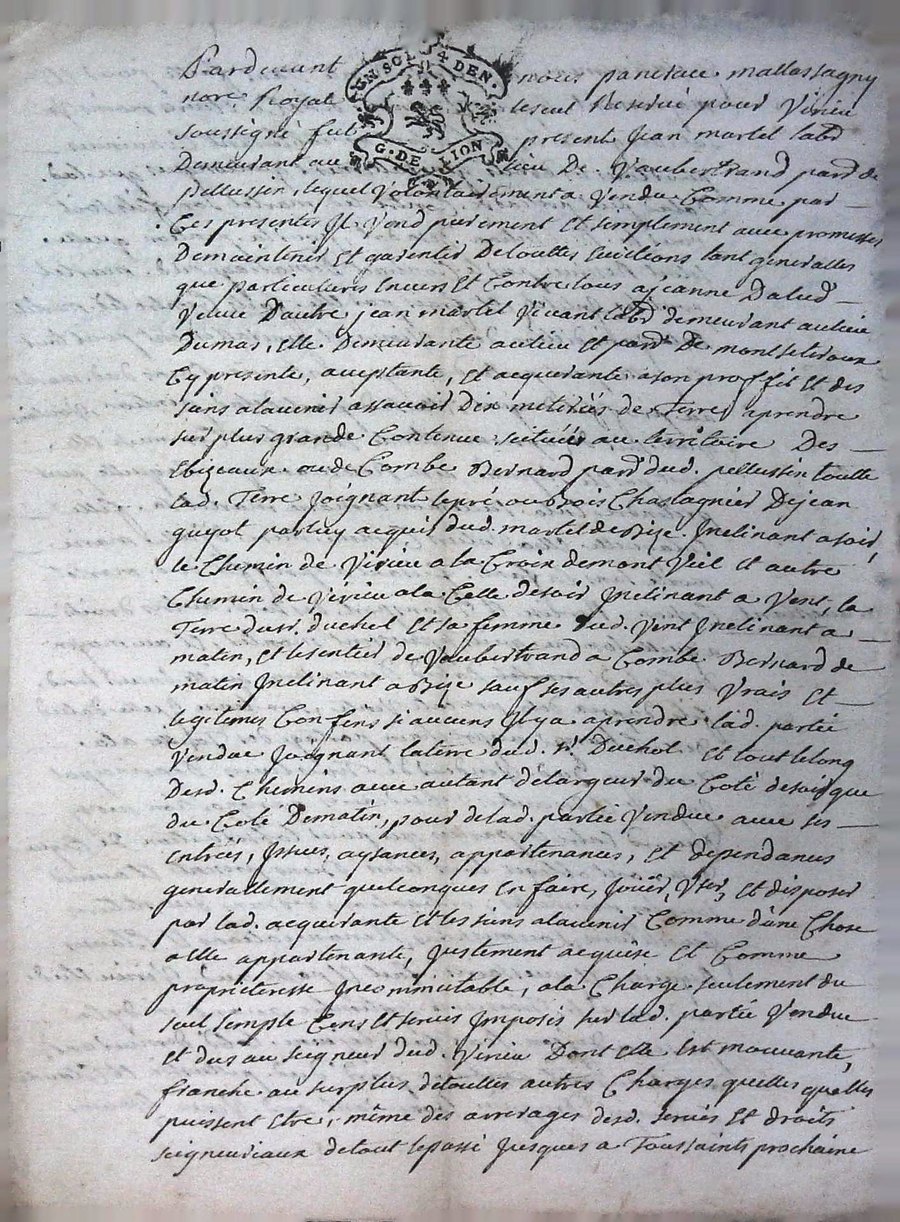 UN SOL 4 DEN.
G. DE LION
Pardevant nous pancrace mallassagny
nore. Royal reservé pour Virieu
soussigné fut present Jean martel labr
Demeurant au lieu De Vaubertrand pard. de
pellussin, lequel volontairement a vendu Comme par
Ces presentes Il Vend purement Et simplement avec promesses
De maintenir Et garentir De touttes Evictions tant generalles
que particulieres Envers Et Contre tous a jeanne Dalud
Veuve D'autre jean martel Vivant labr demeurant au lieu
Dumas, elle Demeurante au lieu Et pard. De
Cy presente, acceptante, Et acquerante a son proffit Et des
siens alavenir assavoir Dix meterées de Terre aprendre
sur plus grande Contenue scituée au territoire Des
ou de Combe Bernard pard. dud. pellussin toutte
lad. Terre Joignant le pré ou Bois Chastagnier De jean
guyot par luy acquis dud. martel de Bize Inclinant a soir,
le Chemin de Virieu a la Croix de mont Veil Et autre
Chemin de Virieu a la Celle de soir Inclinant a Vent, la
Terre dusr. duchol Et sa femme dud. Vent Inclinant a
matin, Et le sentier de Vaubertrand a Combe Bernard de
matin Inclinant a Bize sauf ses autres plus Vrais Et
legitimes Confins si aucuns Il y a aprendre lad. partie
Vendue Joignant la terre dud. sr. Duchol Et tout le long
Desd. Chemins avec autant de largeur du Coté de soir que
du Coté De matin, pour de lad. partie Vendue avec ses
Entrées, Issues, aysances, appartenances, Et dependances
generallement quelconques En faire, Joüir, User, Et disposer
par lad. acquerante Et les siens alavenir Comme d'une Chose
a elle appartenante, Justement acquise Et Comme
proprieteresse Incommutable, a la Charge seulement du
seul simple Cens Et servis Imposés sur lad. partie Vendue
Et dus au seigneur dud. Virieu Dont elle Est mouvante,
franche au surplus de touttes autres Charges quelles quelles
puissent Etre, même des arrerages desd. servis Et droits
seigneuriaux de tout le passé Jusques a Toussaints prochaine